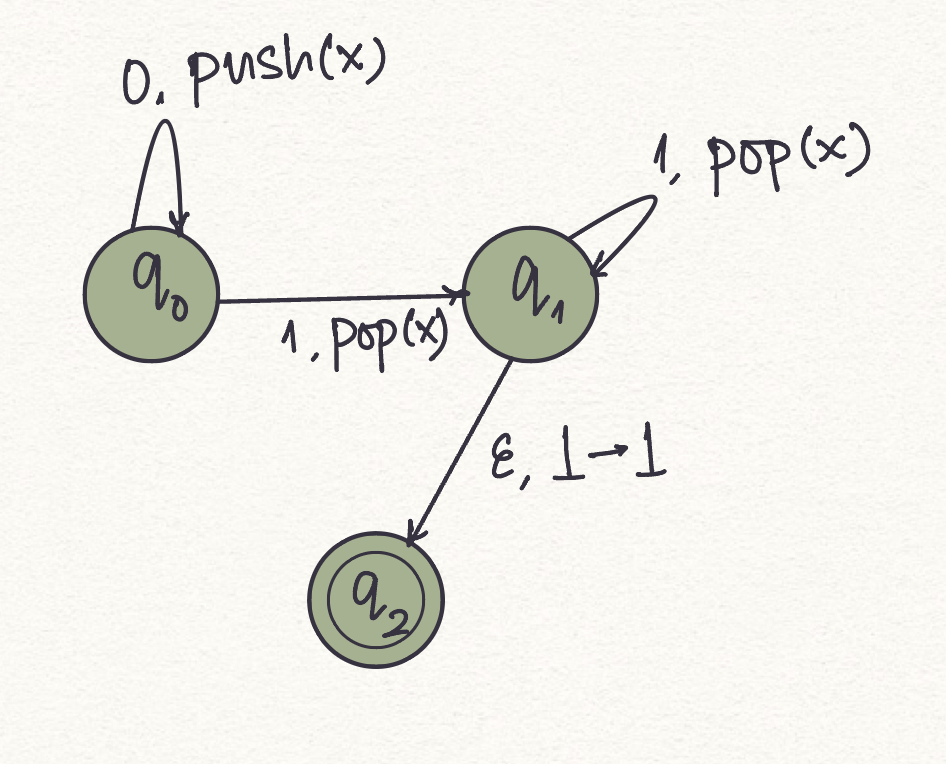 0, push(x)
1, pop(x)
q₀
q₁
1, pop(x)
ε, ⊥→⊥
q₂